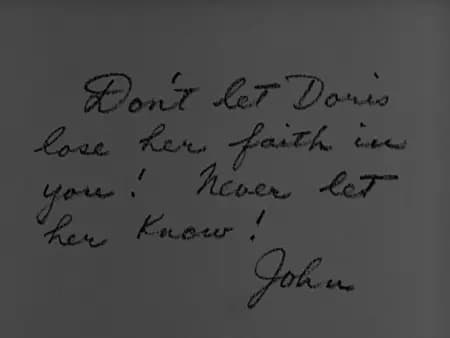 Don't let Doris
lose her faith in
you! Never let
her know!
John